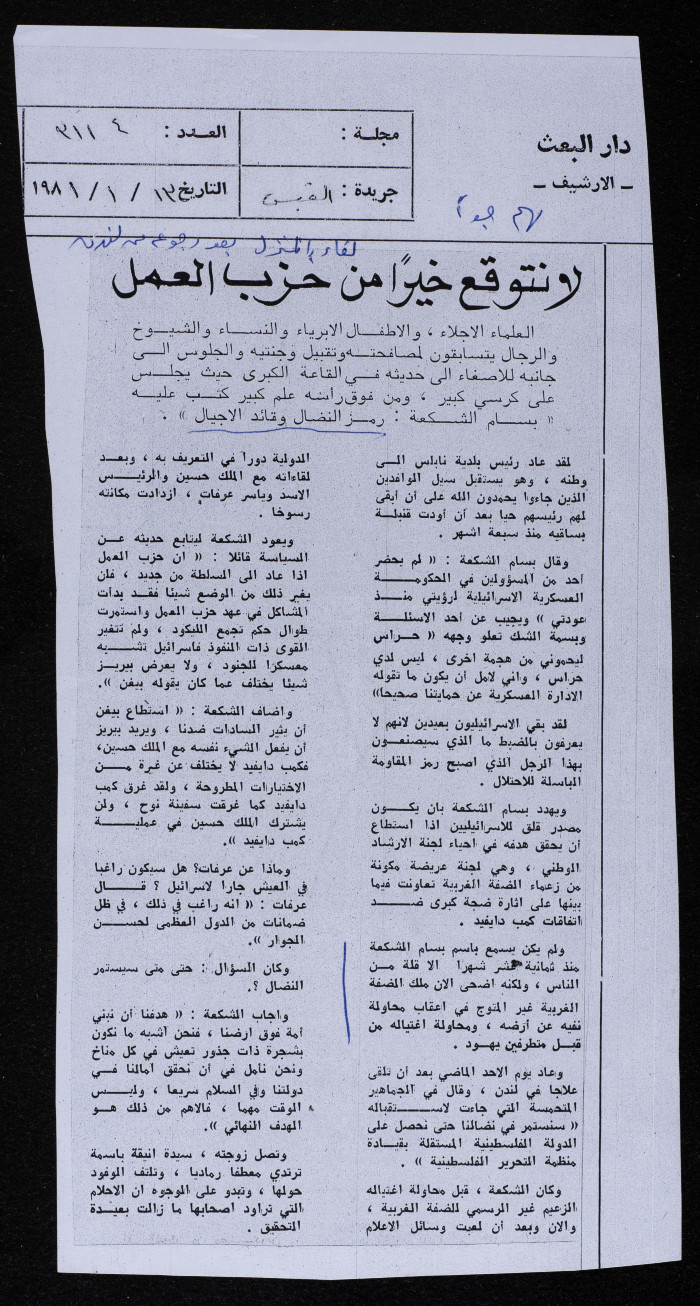 دار البعث
ـ الارشيف ـ
مجلة :
العدد : ٣١١٤
جريدة : القبس
التاريخ ١٣ / ١ / ١٩٨١
لقاء بالمنزل بعد رجوعه من لندن
لا نتوقع خيرًا من حزب العمل
العلماء الاجلاء ، والاطفال الابرياء والنساء والشيوخ
والرجال يتسابقون لمصافحته وتقبيل وجنتيه والجلوس الى
جانبه للاصغاء الى حديثه في القاعة الكبرى حيث يجلس
على كرسي كبير ، ومن فوق رأسه علم كبير كتب عليه
« بسام الشكعة : رمز النضال وقائد الاجيال » .
لقد عاد رئيس بلدية نابلس الى
وطنه ، وهو يستقبل سيل الوافدين
الذين جاءوا يحمدون الله على أن أبقى
لهم رئيسهم حيا بعد أن أودت قنبلة
بساقيه منذ سبعة اشهر .
وقال بسام الشكعة : « لم يحضر
أحد من المسؤولين في الحكومة
العسكرية الاسرائيلية لرؤيتي منذ
عودتي » ويجيب عن أحد الاسئلة
وبسمة الشك تعلو وجهه « حراس
ليحموني من هجمة اخرى ، ليس لدي
حراس ، واني لامل أن يكون ما تقوله
الادارة العسكرية عن حمايتنا صحيحا»
لقد بقي الاسرائيليون بعيدين لانهم لا
يعرفون بالضبط ما الذي سيصنعون
بهذا الرجل الذي اصبح رمز المقاومة
الباسلة للاحتلال .
ويهدد بسام الشكعة بان يكون
مصدر قلق للاسرائيليين اذا استطاع
أن يحقق هدفه في احياء لجنة الارشاد
الوطني ، وهي لجنة عريضة مكونة
من زعماء الضفة الغربية تعاونت فيما
بينها على اثارة ضجة كبرى ضد
اتفاقات كمب دايفيد .
ولم يكن يسمع باسم بسام الشكعة
منذ ثمانية عشر شهرا الا قلة من
الناس ، ولكنه اضحى الان ملك الضفة
الغربية غير المتوج في اعقاب محاولة
نفيه عن أرضه ، ومحاولة اغتياله من
قبل متطرفين يهود .
وعاد يوم الاحد الماضي بعد أن تلقى
علاجا في لندن ، وقال في الجماهير
المتحمسة التي جاءت لاستقباله
« سنستمر في نضالنا حتى نحصل على
الدولة الفلسطينية المستقلة بقيادة
منظمة التحرير الفلسطينية » .
وكان الشكعة ، قبل محاولة اغتياله
الزعيم غير الرسمي للضفة الغربية ،
والان وبعد أن لعبت وسائل الاعلام
الدولية دورا في التعريف به ، وبعد
لقاءاته مع الملك حسين والرئيس
الاسد وياسر عرفات ، ازدادت مكانته
رسوخا .
ويعود الشكعة ليتابع حديثه عن
السياسة قائلا : « ان حزب العمل
اذا عاد الى السلطة من جديد ، فلن
يغير ذلك من الوضع شيئا فقد بدأت
المشاكل في عهد حزب العمل واستمرت
طوال حكم تجمع الليكود ، ولم تتغير
القوى ذات النفوذ فاسرائيل تشبه
معسكرا للجنود ، ولا يعرض بيريز
شيئا يختلف عما كان يقوله بيغن ».
واضاف الشكعة : « استطاع بيغن
أن يثير السادات ضدنا ، ويريد بيريز
أن يفعل الشيء نفسه مع الملك حسين،
فكمب دايفيد لا يختلف عن غيره من
الاختيارات المطروحة ، ولقد غرق كمب
دايفيد كما غرقت سفينة نوح ، ولن
يشترك الملك حسين في عملية
كمب دايفيد ».
وماذا عن عرفات؟ هل سيكون راغبا
في العيش جارا لاسرائيل ؟ قال
عرفات : « انه راغب في ذلك ، في ظل
ضمانات من الدول العظمى لحسن
الجوار ».
وكان السؤال : حتى متى سيستمر
النضال ؟.
واجاب الشكعة : « هدفنا أن نبني
أمة فوق ارضنا ، فنحن أشبه ما نكون
بشجرة ذات جذور تعيش في كل مناخ
ونحن نأمل في أن نحقق آمالنا في
دولتنا وفي السلام سريعا ، وليس
الوقت مهما ، فالاهم من ذلك هو
الهدف النهائي ».
وتصل زوجته ، سيدة انيقة باسمة
ترتدي معطفا رماديا ، وتلتف الوفود
حولها ، وتبدو على الوجوه ان الاحلام
التي تراود اصحابها ما زالت بعيدة
التحقيق .